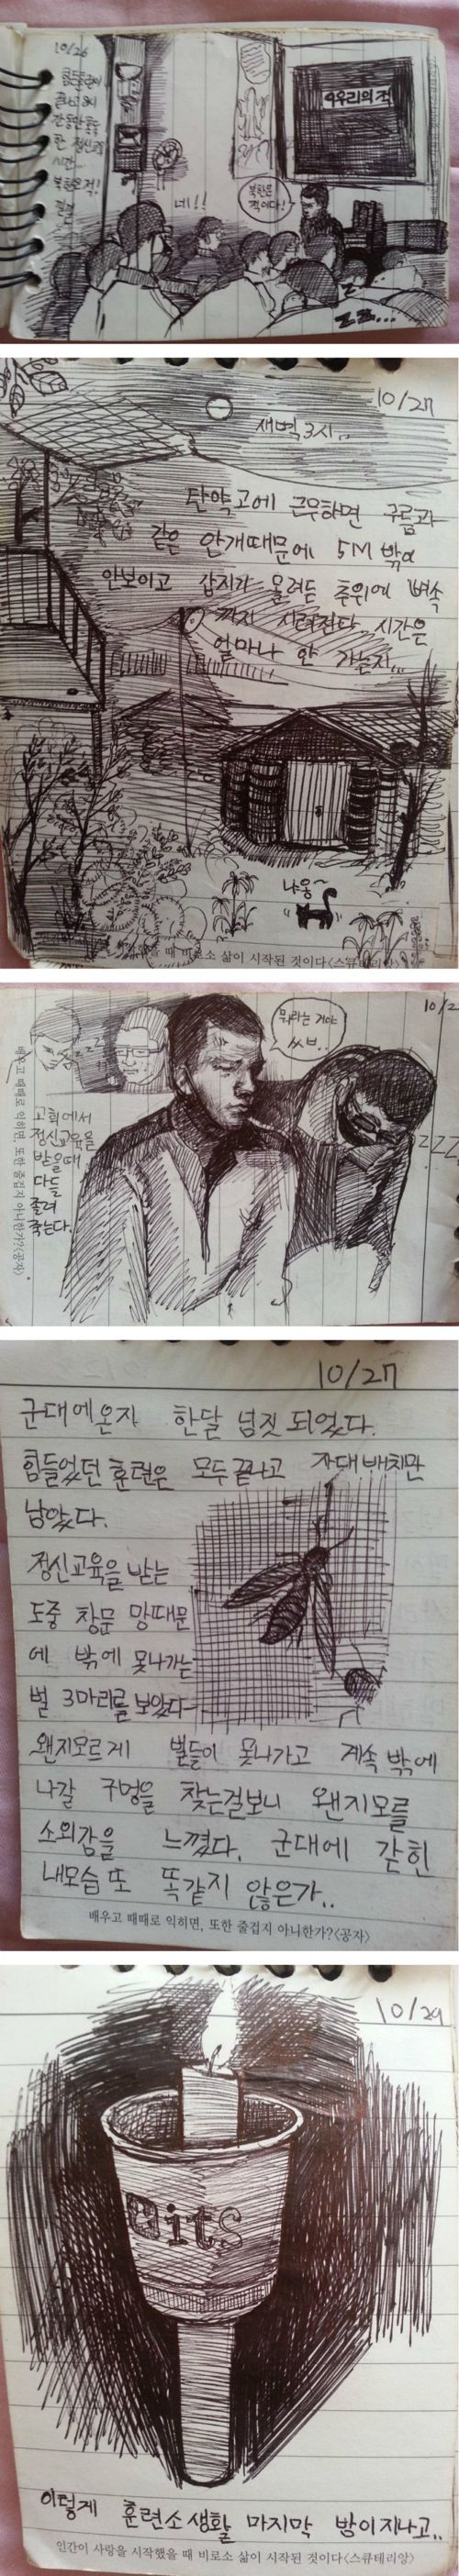 10/26
훈련
끝나고 8시
간동안
한 정신교육
시간..
북한은 적!
네!!
북한은
적이다!
우리의 적
Z Zz...
10/27
새벽 3시..
탄약고에 근무하면 구름과
같은 안개때문에 5M 밖에
안보이고 갑자기 몰려든 추위에 뼈속
까지 시려진다. 시간은
얼마나 안 가는지...
냐옹~
때 비로소 삶이 시작된 것이다<스큐데리양>
10/2
뭐라는 거야
ㅆㅂ..
zzz
ZZZ
교회에서
정신교육을
받을때
다들
졸려
죽는다.
배우고 때때로 익히면, 또한 즐겁지 아니한가?<공자>
10/27
군대에온지 한달 넘짓 되었다.
힘들었던 훈련은 모두 끝나고 자대배치만
남았다.
정신교육을 받는
도중 창문 망때문
에 밖에 못나가는
벌 3마리를 보았다
왠지모르게 벌들이 못나가고 계속 밖에
나갈 구멍을 찾는걸보니 왠지모를
소외감을 느꼈다. 군대에 갇힌
내모습 또 똑같지 않은가..
배우고 때때로 익히면, 또한 즐겁지 아니한가?<공자>
10/29
이렇게 훈련소생활 마지막 밤이지나고..
인간이 사랑을 시작했을 때 비로소 삶이 시작된 것이다<스큐테리양>